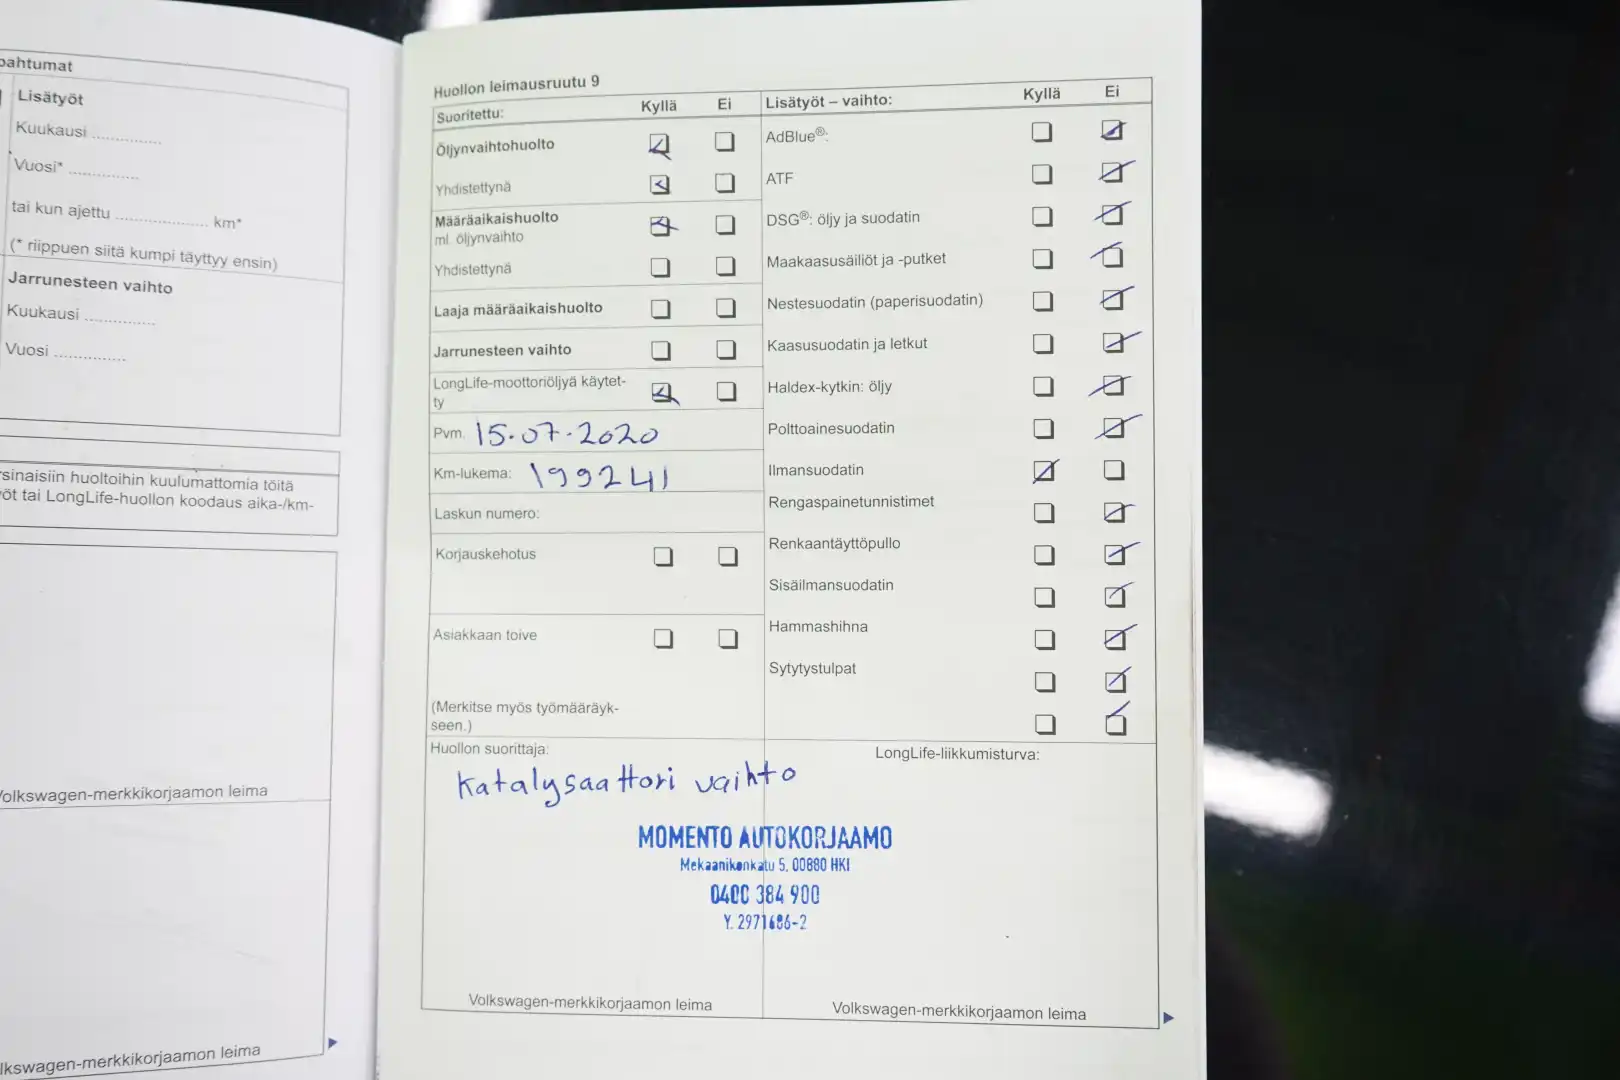 pahtumat
Lisätyöt
Kuukausi ..............
Vuosi* ..............
tai kun ajettu ................... km*
(* riippuen siitä kumpi täyttyy ensin)
Jarrunesteen vaihto
Kuukausi ..............
Vuosi ..............
sinaisiin huoltoihin kuulumattomia töitä
öt tai LongLife-huollon koodaus aika-/km-
Volkswagen-merkkikorjaamon leima
lkswagen-merkkikorjaamon leima
Huollon leimausruutu 9
Suoritettu: Kyllä Ei
Öljynvaihtohuolto
Yhdistettynä
Määräaikaishuolto
ml. öljynvaihto
Yhdistettynä
Laaja määräaikaishuolto
Jarrunesteen vaihto
LongLife-moottoriöljyä käytet-
ty
Pvm. 15.07.2020
Km-lukema: 199241
Laskun numero:
Korjauskehotus
Asiakkaan toive
(Merkitse myös työmääräyk-
seen.)
Lisätyöt – vaihto: Kyllä Ei
AdBlue®:
ATF
DSG®: öljy ja suodatin
Maakaasusäiliöt ja -putket
Nestesuodatin (paperisuodatin)
Kaasusuodatin ja letkut
Haldex-kytkin: öljy
Polttoainesuodatin
Ilmansuodatin
Rengaspainetunnistimet
Renkaantäyttöpullo
Sisäilmansuodatin
Hammashihna
Sytytystulpat
Huollon suorittaja:
LongLife-liikkumisturva:
Katalysaattori vaihto
MOMENTO AUTOKORJAAMO
Mekaanikonkatu 5, 00880 HKI
0400 384 900
Y. 2971686-2
Volkswagen-merkkikorjaamon leima
Volkswagen-merkkikorjaamon leima